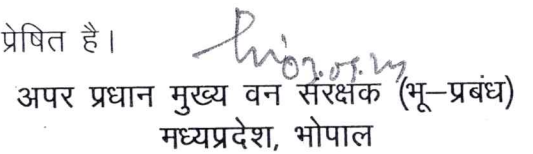 प्रेषित है।
अपर प्रधान मुख्य वन संरक्षक (भू–प्रबंध)
मध्यप्रदेश, भोपाल